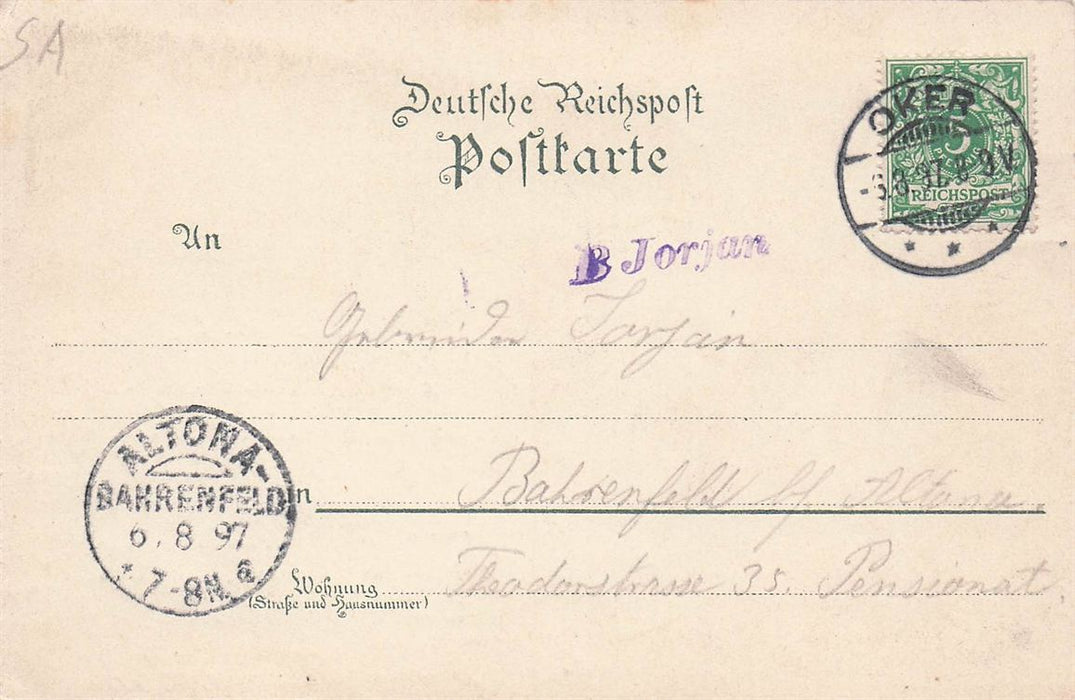 SA
Deutsche Reichspost
Postkarte
OKER
8. 97. 8-9V.
5
PFENNIG
REICHSPOST
An
B Jorjan
Gebrüder Jorjan
ALTONA-
BAHRENFELD
6. 8 97
7-8N. a
in Bahrenfeld b/ Altona.
Wohnung Theodorstrasse 35. Pensionat.
(Straße und Hausnummer)